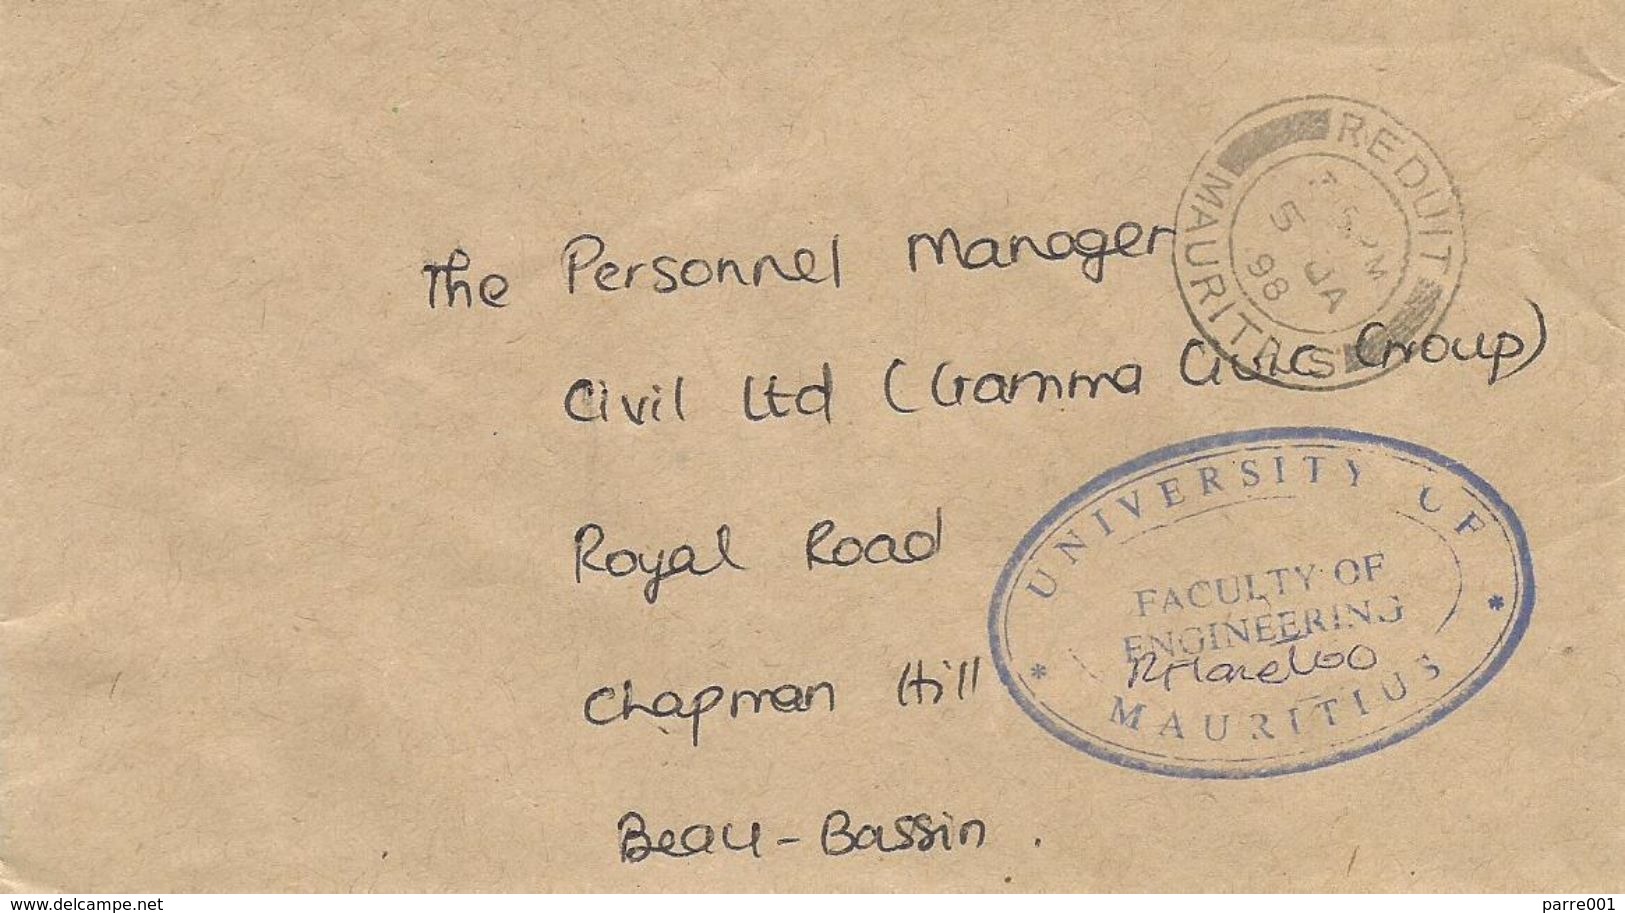 REDUIT
5 JA
98
MAURITIUS
The Personnel Manager
Civil Ltd (Gamma Civic Group)
Royal Road
Chapman Hill
Beau-Bassin.
UNIVERSITY OF
FACULTY OF
ENGINEERING
MAURITIUS
www.delcampe.net
parre001